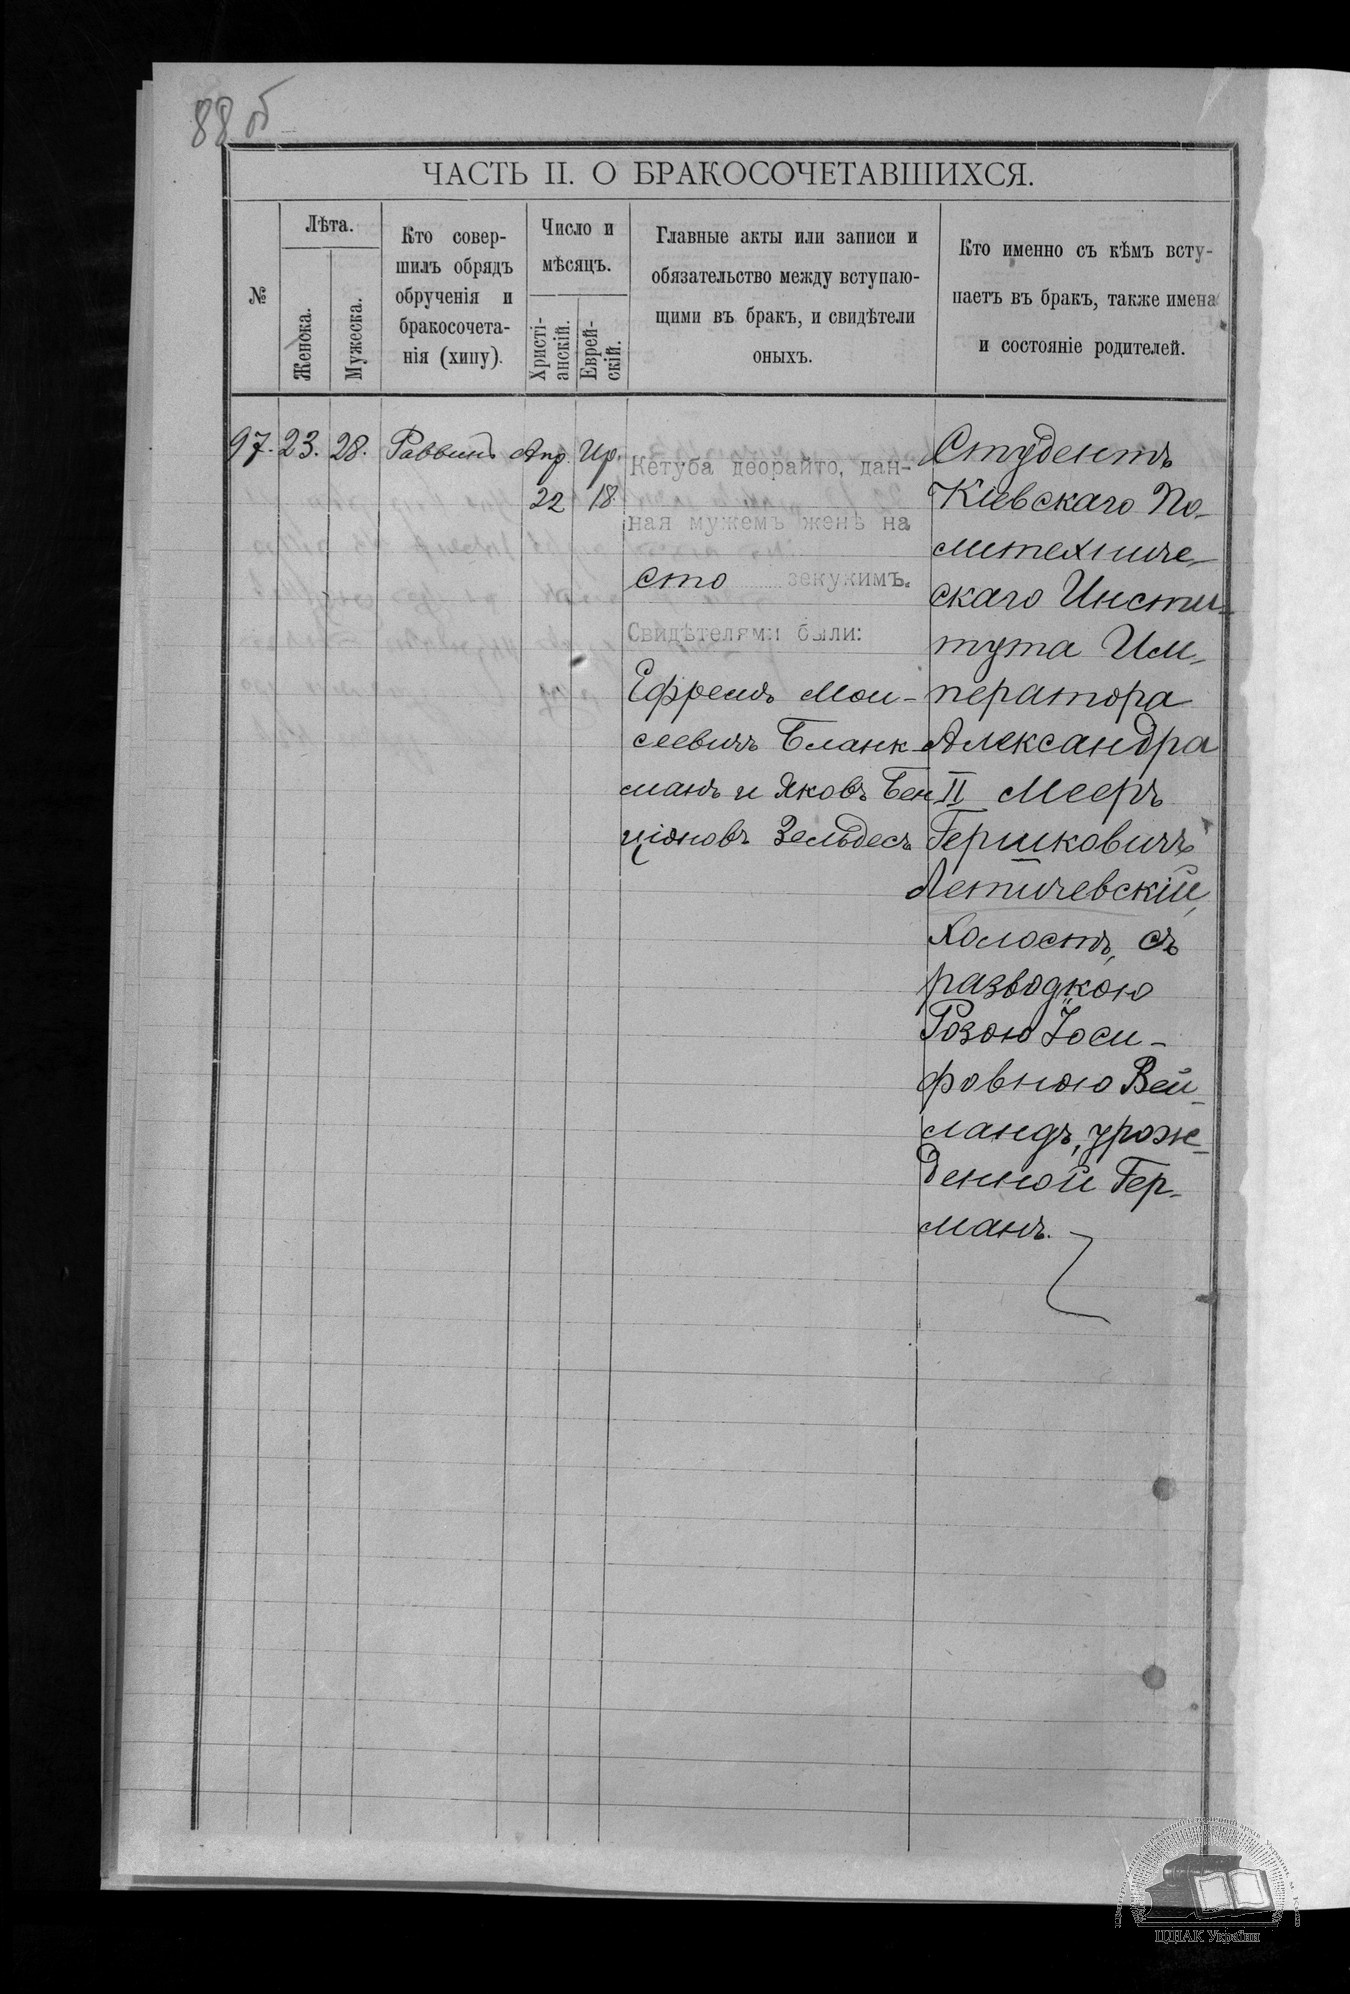 88 об
ЧАСТЬ II. О БРАКОСОЧЕТАВШИХСЯ.
№
Лѣта.
Женска.
Мужеска.
Кто совер-
шилъ обрядъ
обрученія и
бракосочета-
нія (хипу).
Число и
мѣсяцъ.
Христі-
анскій.
Еврей-
скій.
Главные акты или записи и
обязательство между вступаю-
щими въ бракъ, и свидѣтели
оныхъ.
Кто именно съ кѣмъ всту-
паетъ въ бракъ, также имена
и состояніе родителей.
97. 23. 28. Раввинъ Апр. Ир.
22 18
Кетуба деорайто, дан-
ная мужемъ женѣ на
сто зекукимъ.
Свидѣтелями были:
Ефремъ Мои-
сеевичъ Бланк-
манъ и Яковъ Бен
ціоновъ Зельдесъ
Студентъ
Кіевскаго По-
литехниче-
скаго Инсти-
тута Им-
ператора
Александра
II Мееръ
Гершковичъ
Летичевскій,
холостъ, съ
разводкою
Розою Іоси-
фовною Вей-
ландъ, урож-
денной Гер-
манъ.
ЦДІАК України